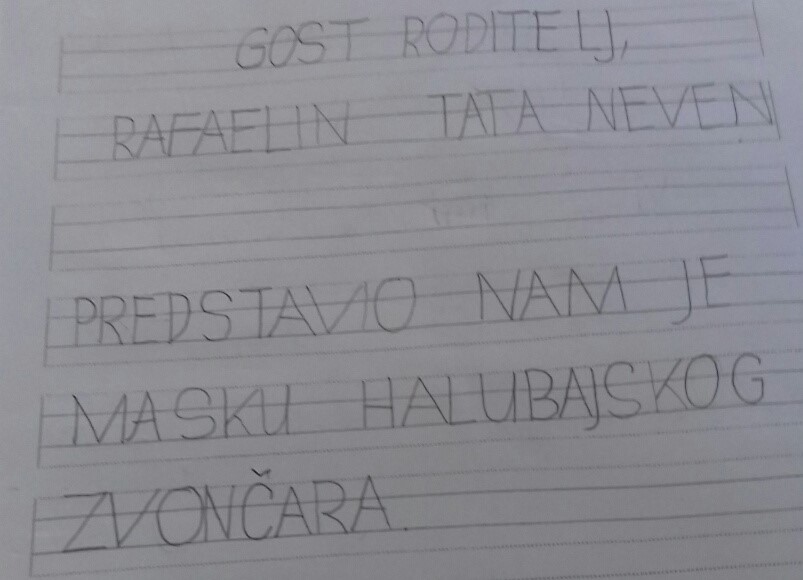 GOST RODITELJ,
RAFAELIN TATA NEVEN
PREDSTAVIO NAM JE
MASKU HALUBAJSKOG
ZVONČARA.